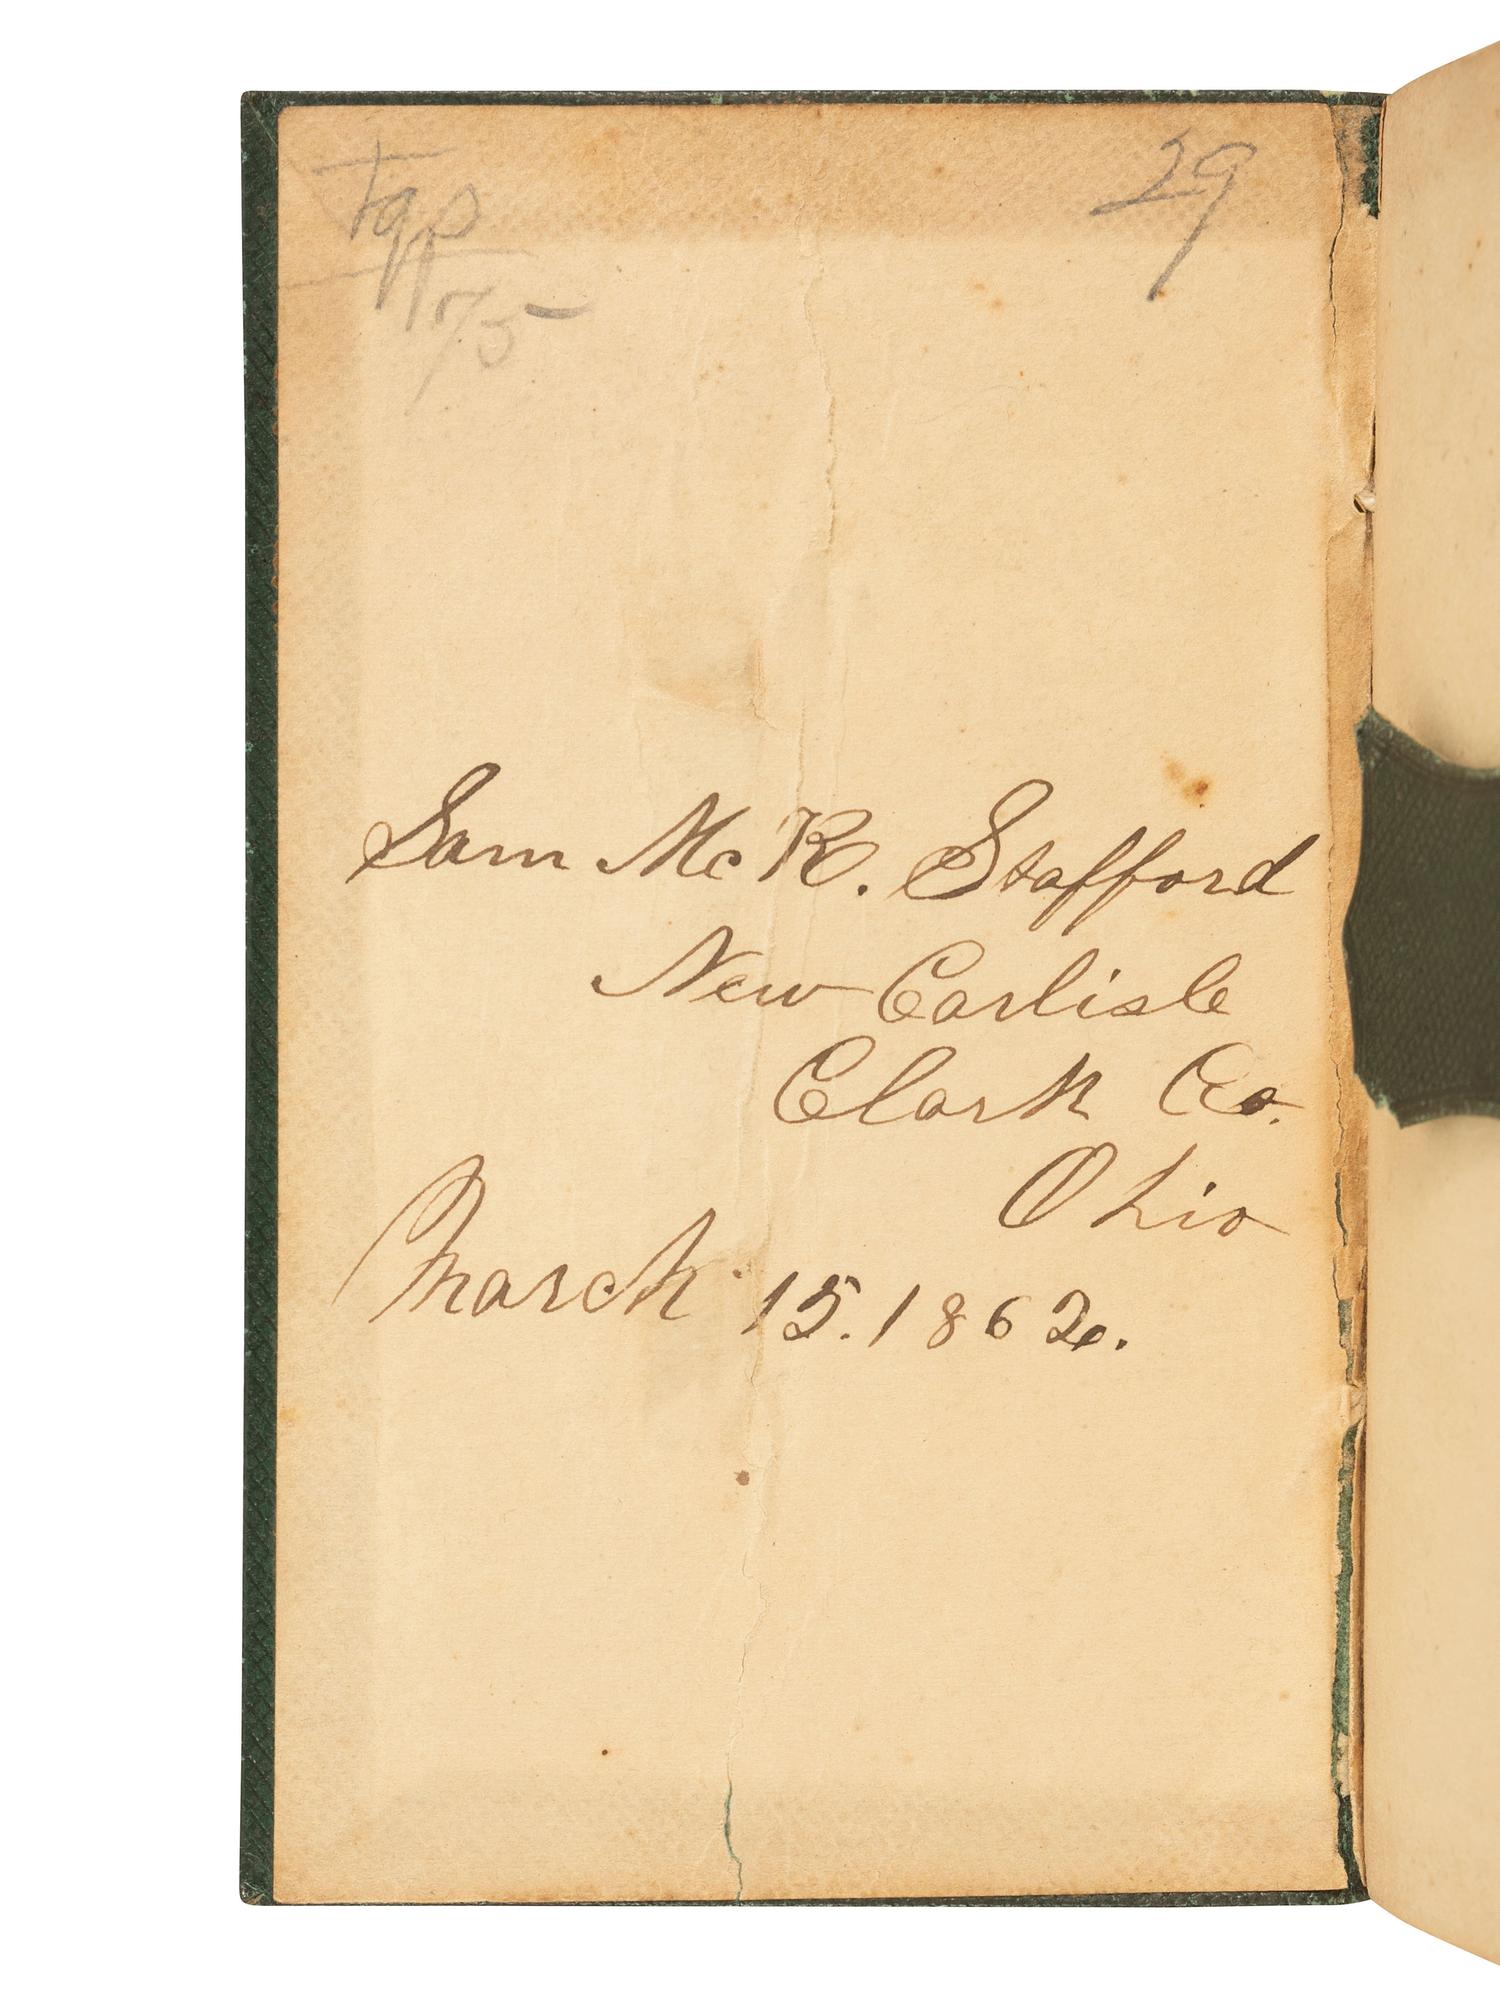 29
Sam McK. Stafford
New Carlisle
Clark Co.
Ohio
March 15. 1862.